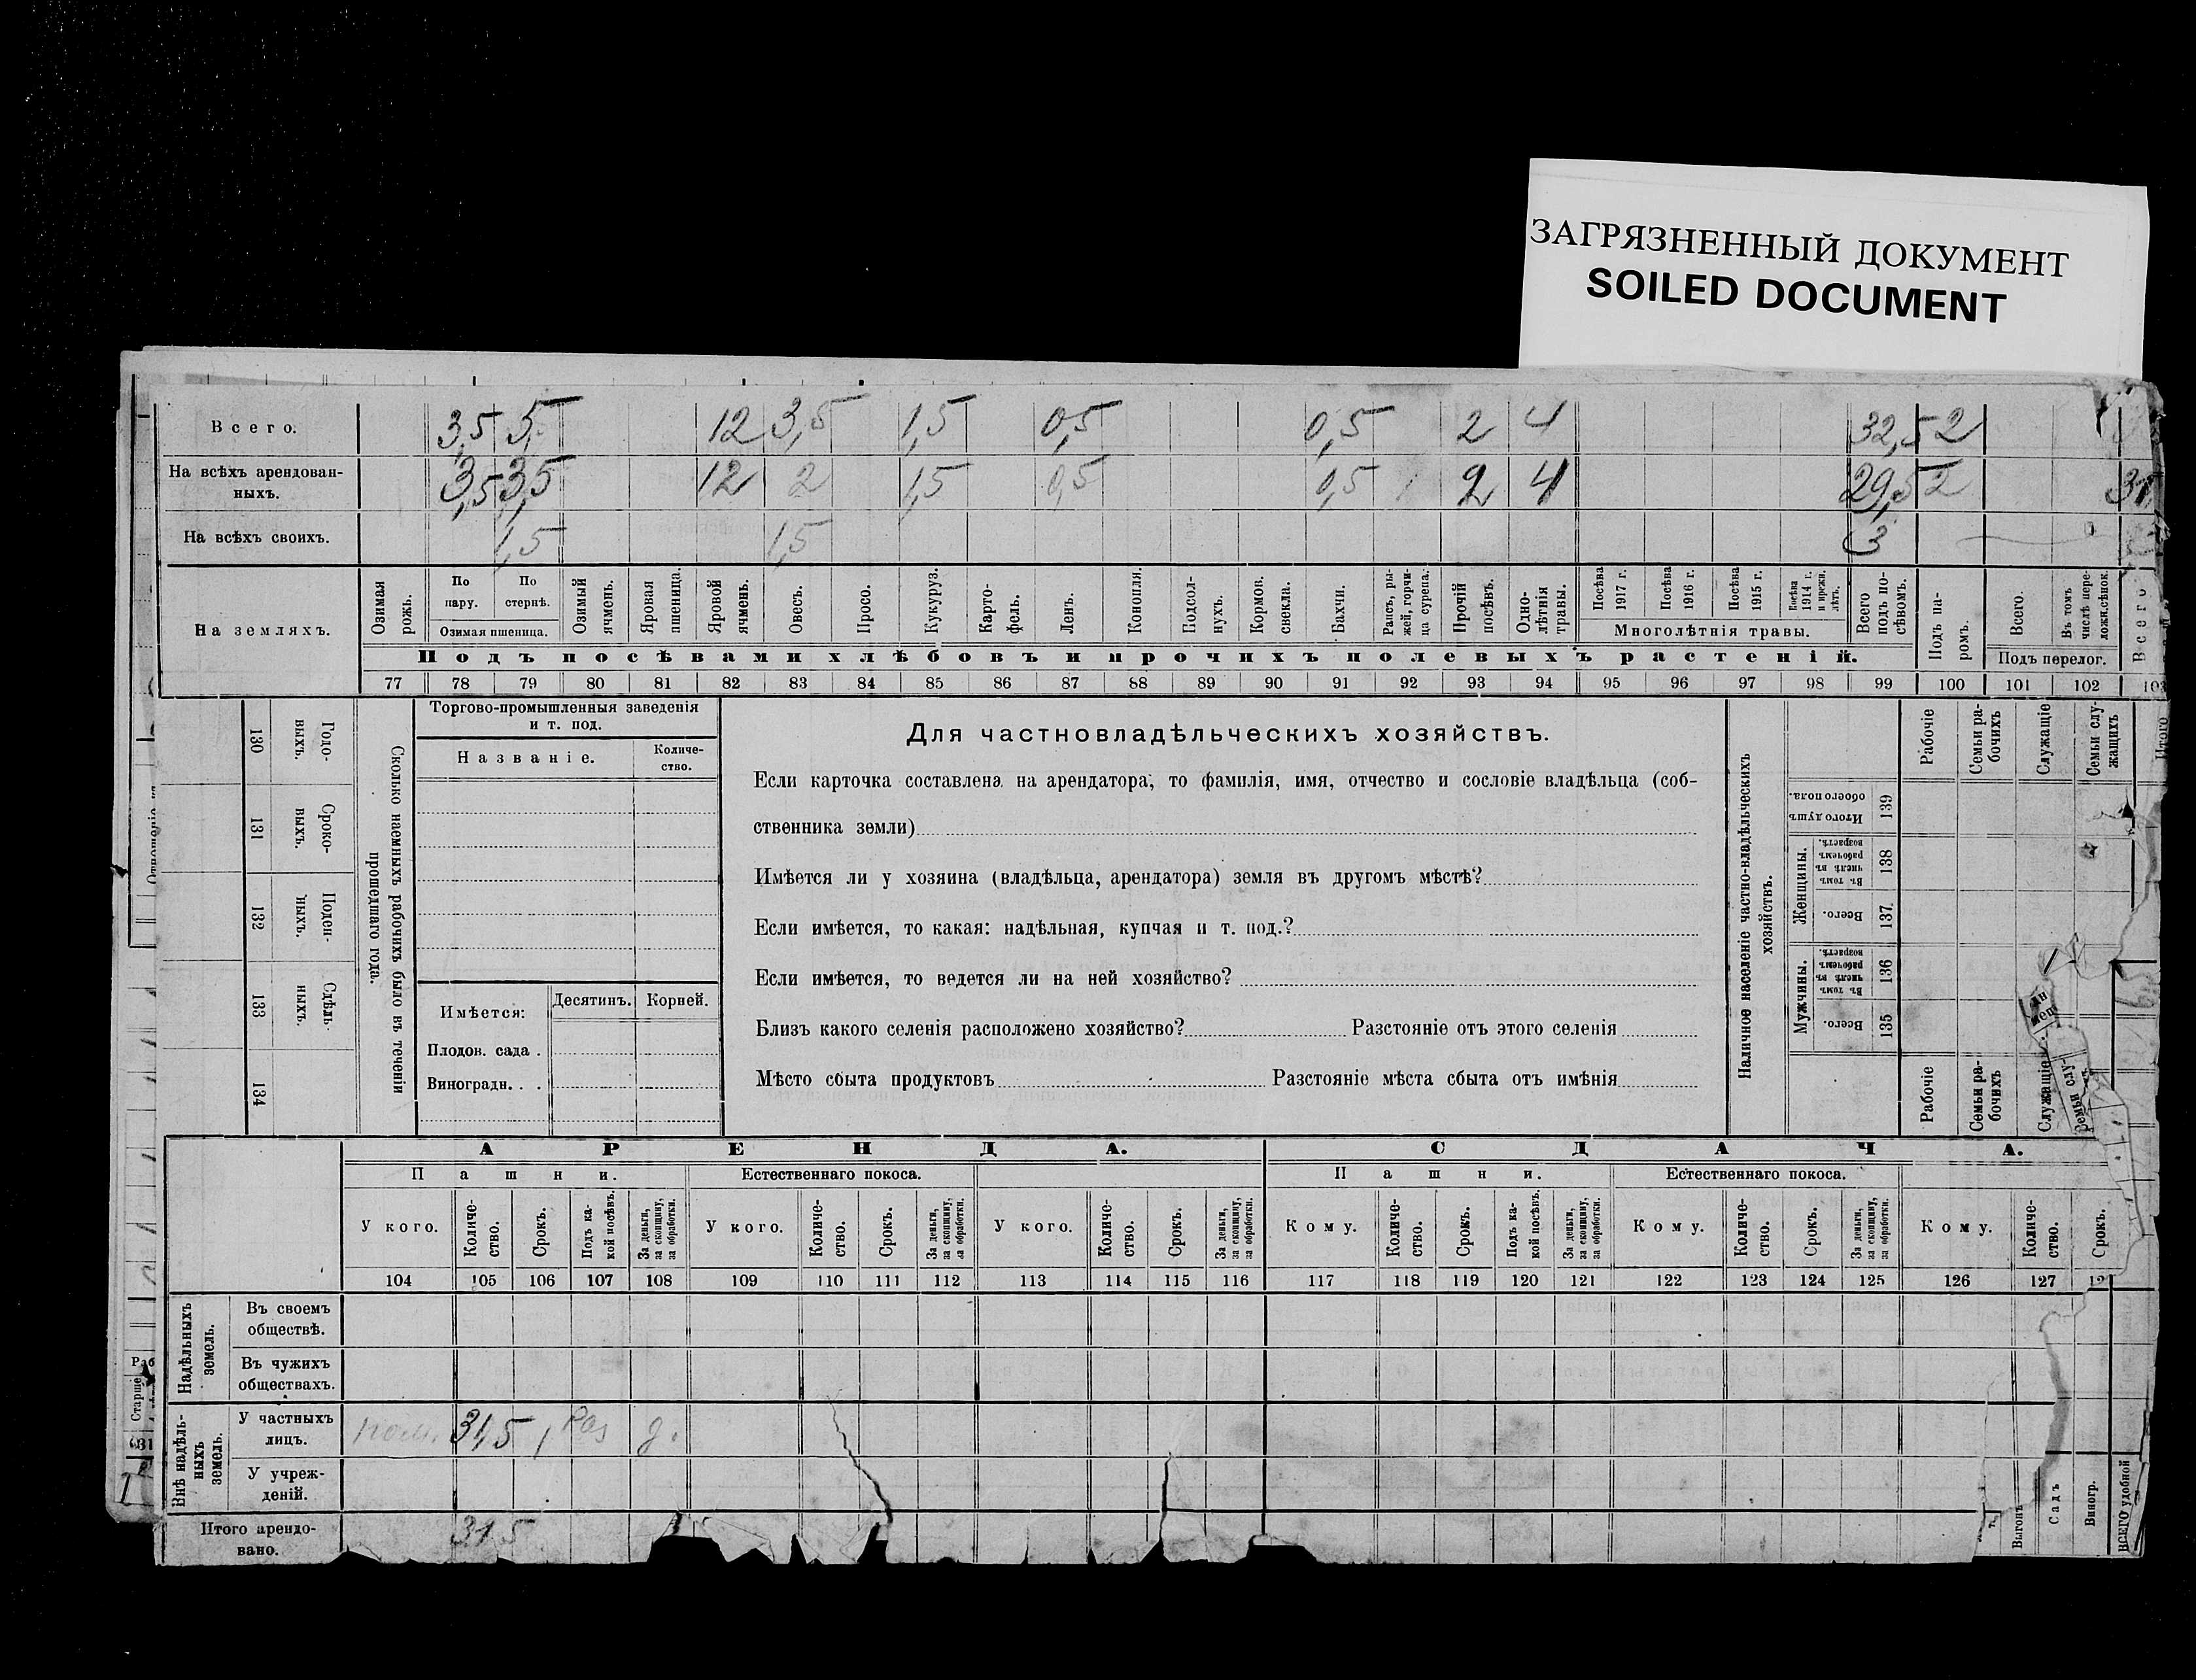 ЗАГРЯЗНЕННЫЙ ДОКУМЕНТ
SOILED DOCUMENT
Всего. 3,5 5 12 3,5 1,5 0,5 0,5 2 4 32,5 2
На всѣхъ арендован-
ныхъ. 3,5 3,5 12 2 1,5 0,5 0,5 2 4 29,5 2
На всѣхъ своихъ. 1,5 1,5 3
На земляхъ.
Озимая рожь.
По пару.
По стернѣ.
Озимая пшеница.
Озимый ячмень.
Яровая пшеница.
Яровой ячмень.
Овесъ.
Просо.
Кукуруз.
Карто-
фель.
Ленъ.
Конопля.
Подсол-
нухъ.
Кормов. свекла.
Бахчи.
Рапсъ, ры-
жей, горчи-
ца сурепа.
Прочій посѣвъ.
Одно-
лѣтнія травы.
Посѣва 1917 г.
Посѣва 1916 г.
Посѣва 1915 г.
Посѣва 1914 г. и прежн. лѣтъ.
Многолѣтнія травы.
Всего подъ по-
сѣвомъ.
Подъ па-
ромъ.
Всего.
Въ томъ числѣ пере-
лож.сѣнок.
Подъ перелог.
Всего
Подъ посѣвами хлѣбовъ и прочихъ полевыхъ растеній.
77 78 79 80 81 82 83 84 85 86 87 88 89 90 91 92 93 94 95 96 97 98 99 100 101 102 103
130 Годо-
выхъ.
131 Сроко-
выхъ.
132 Поден-
ныхъ.
133 Сдѣль-
ныхъ.
134
Сколько наемныхъ рабочихъ было въ теченіи
прошедшаго года.
Торгово-промышленныя заведенія
и т. под.
Названіе.
Количе-
ство.
Имѣется:
Десятинъ.
Корней.
Плодов. сада .
Виноградн. . .
Для частновладѣльческихъ хозяйствъ.
Если карточка составлена на арендатора, то фамилія, имя, отчество и сословіе владѣльца (соб-
ственника земли)
Имѣется ли у хозяина (владѣльца, арендатора) земля въ другомъ мѣстѣ?
Если имѣется, то какая: надѣльная, купчая и т. под.?
Если имѣется, то ведется ли на ней хозяйство?
Близъ какого селенія расположено хозяйство? Разстояніе отъ этого селенія
Мѣсто сбыта продуктовъ Разстояніе мѣста сбыта отъ имѣнія
Наличное населеніе частно-владѣльческихъ
хозяйствъ.
Итого душъ обоего пола. 139
Женщины.
Въ томъ числѣ въ рабочемъ возрастѣ. 138
Всего. 137
Мужчины.
Въ томъ числѣ въ рабочемъ возрастѣ. 136
Всего. 135
Рабочіе
Семьи ра-
бочихъ
Служащіе
Семьи слу-
жащихъ
Итого
Рабочіе
Семьи ра-
бочихъ
Служащіе
Семьи слу-
АРЕНДА. СДАЧА.
Пашни. Естественнаго покоса. Пашни. Естественнаго покоса.
У кого.
Количе-
ство.
Срокъ.
Подъ ка-
кой посѣвъ.
За деньги, за скопщину, за обработки.
У кого.
Количе-
ство.
Срокъ.
За деньги, за скопщину, за обработки.
У кого.
Количе-
ство.
Срокъ.
За деньги, за скопщину, за обработки.
Кому.
Количе-
ство.
Срокъ.
Подъ ка-
кой посѣвъ.
За деньги, за скопщину, за обработки.
Кому.
Количе-
ство.
Срокъ.
За деньги, за скопщину, за обработки.
Кому.
Количе-
ство.
Срокъ.
104 105 106 107 108 109 110 111 112 113 114 115 116 117 118 119 120 121 122 123 124 125 126 127
Надѣльныхъ земель.
Въ своемъ
обществѣ.
Въ чужихъ
обществахъ.
Внѣ надѣль-
ныхъ земель.
У частныхъ
лицъ. 31,5
У учреж-
деній.
Итого арендо-
вано. 31,5
Старше
Выгонъ
Садъ
Виногр.
ВСЕГО удобной